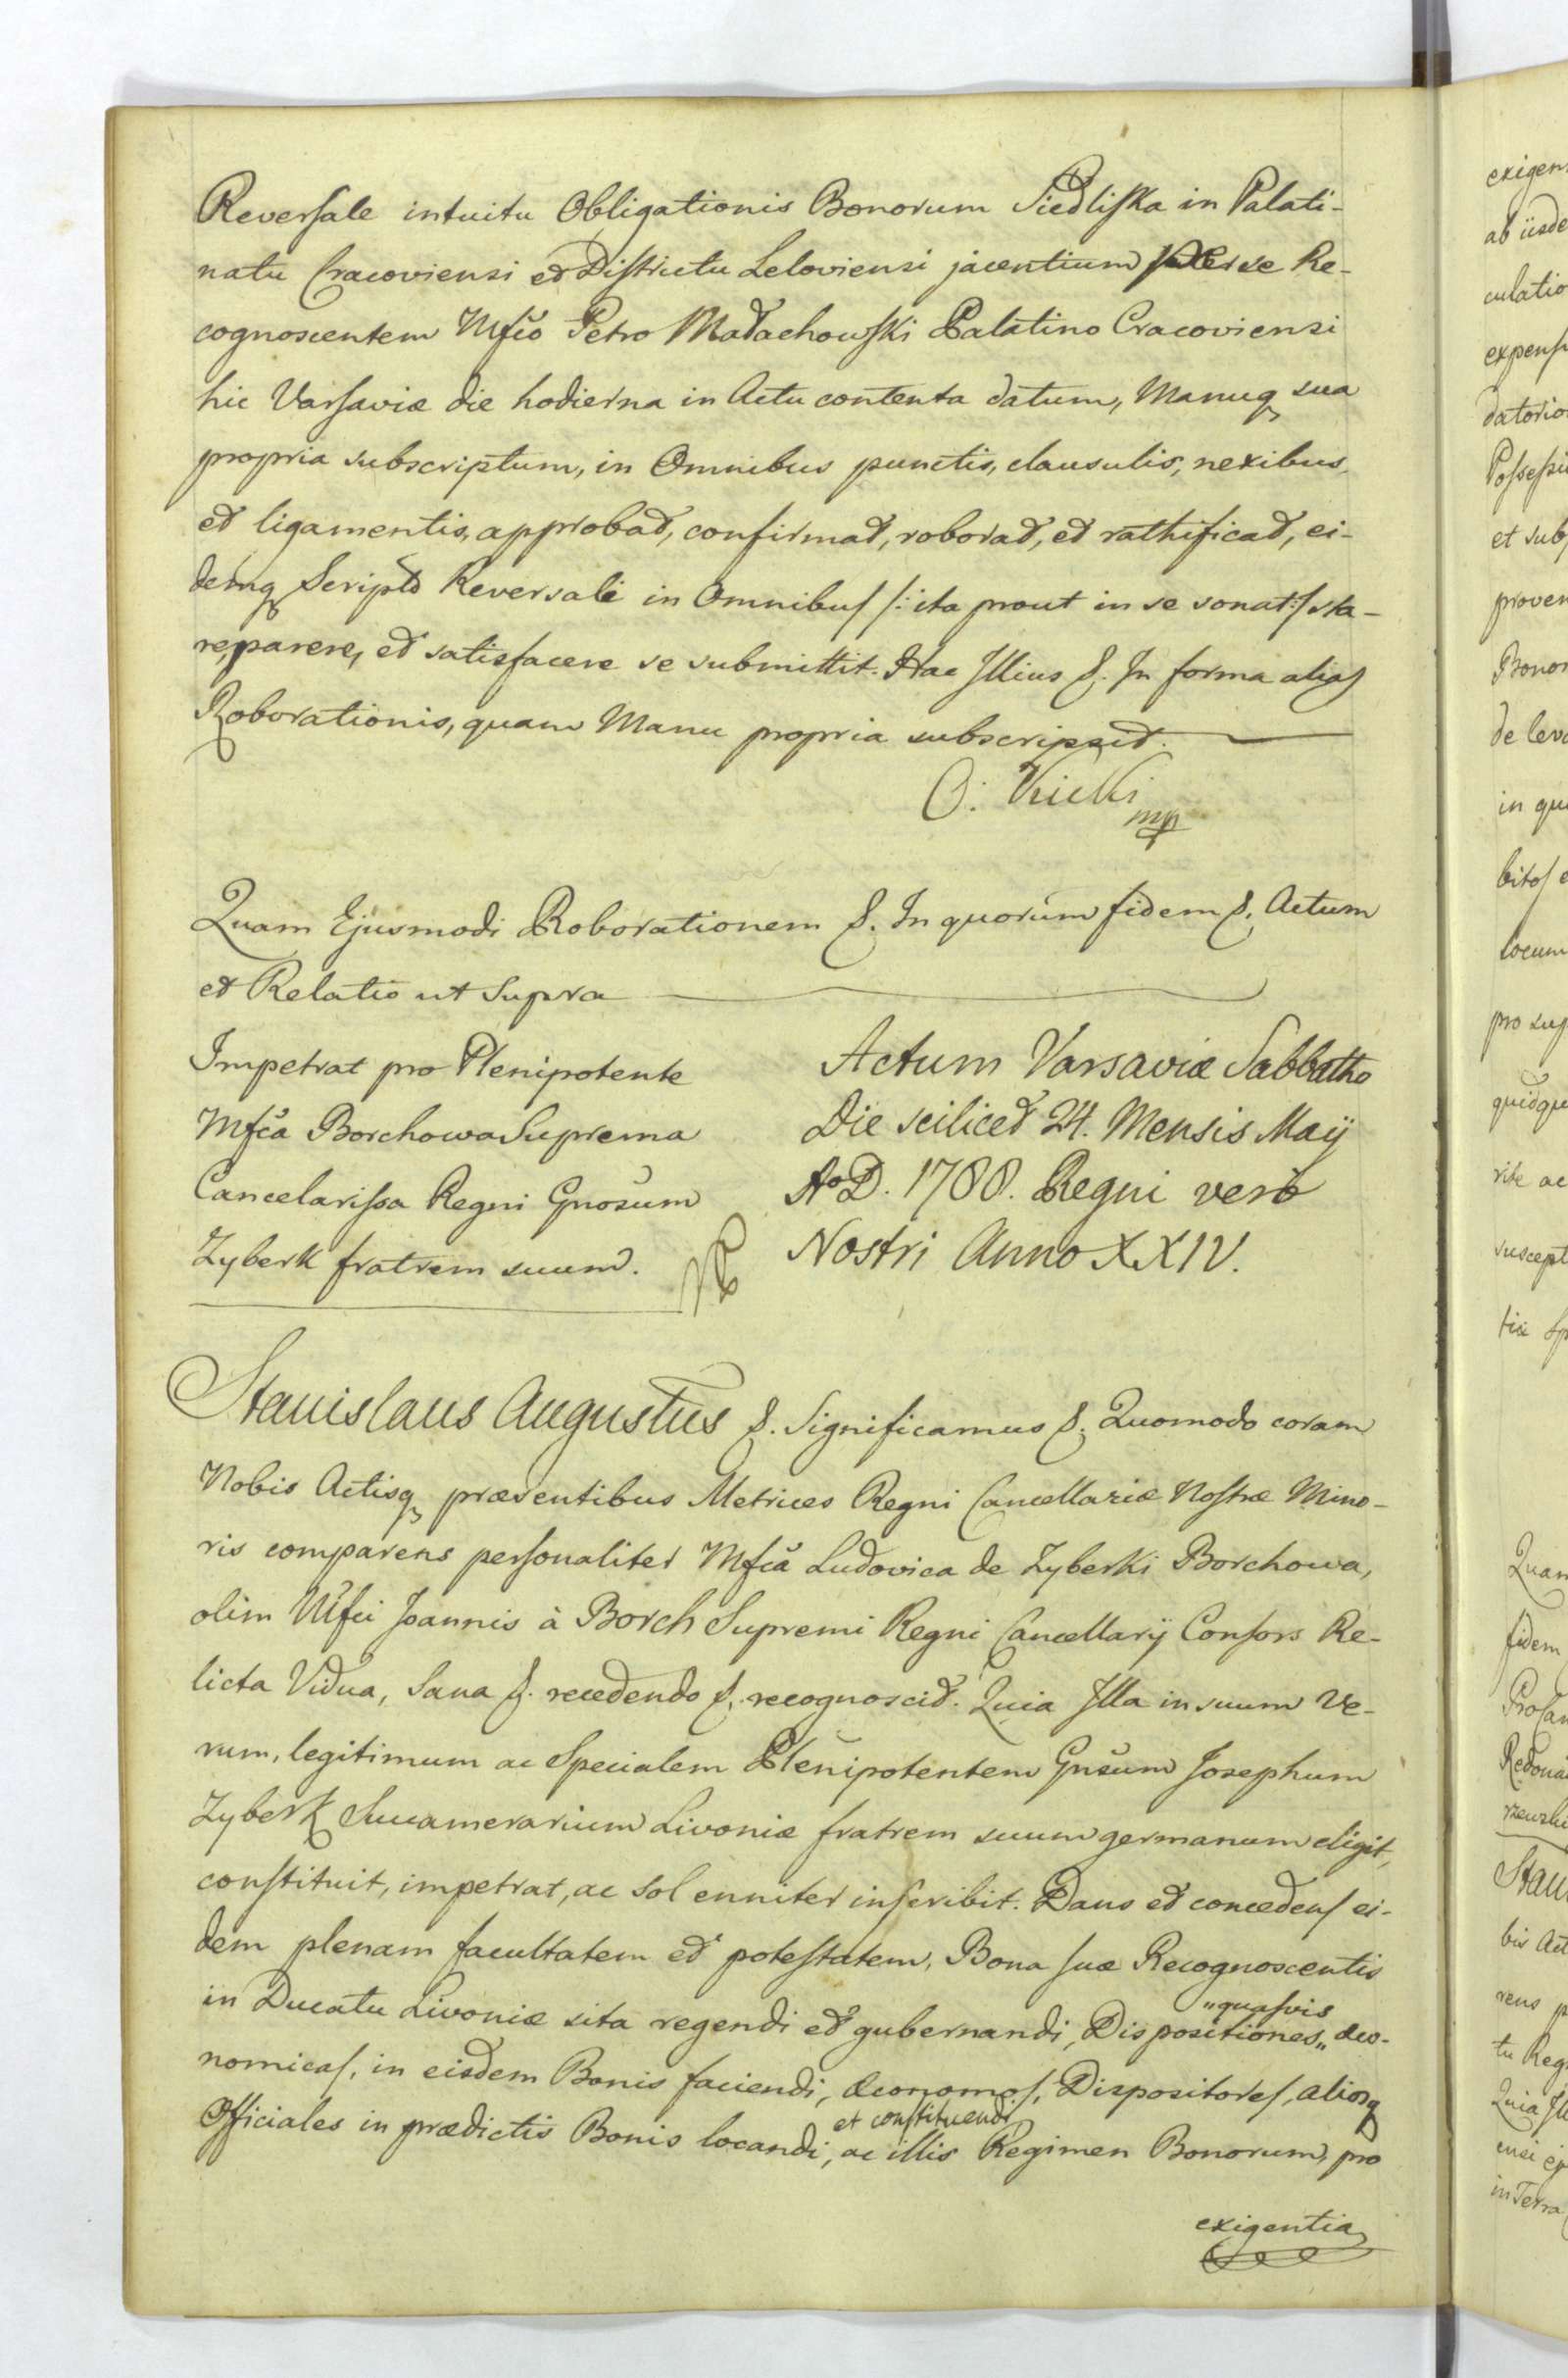 Reversale intuitu Obligationis Bonorum Siedliska in Palati-
natu Cracoviensi et Districtu Leloviensi jacentium per se Re-
cognoscentem Mfco Petro Małachowski Palatino Cracoviensi
hic Varsaviæ die hodierna in Actu contenta datum, Manuq sua
propria subscriptum, in Omnibus punctis, clausulis, nexibus
et ligamentis, approbat, confirmat, roborat, et rathificat, ei-
demq Scripto Reversali in Omnibus /: ita prout in se sonat :/ sta-
re, parere, et satisfacere se submittit. Hac Illius &. In forma alias
Roborationis, quam Manu propria subscripsit.
mp
Quam Ejusmodi Roborationem &. In quorum fidem &. Actum
et Relatio ut Supra
Impetrat pro Plenipotente
Mfca Borchowa Suprema
Cancelarissa Regni Gnosum
Zyberk fratrem suum.
Actum Varsaviæ Sabbatho
Die scilicet 24. Mensis Maij
Ao D. 1788. Regni vero
Nostri Anno XXIV.
Stanislaus Augustus &. Significamus &. Quomodo coram
Nobis Actisq præsentibus Metrices Regni Cancellariæ Nostræ Mino-
ris comparens personaliter Mfca Ludovica de Zyberki Borchowa,
olim Mfci Joannis à Borch Supremi Regni Cancellarij Consors Re-
licta Vidua, Sana &. recedendo &. recognoscit. Quia Illa in suum Ve-
rum, legitimum ac Specialem Plenipotentem Gnsum Josephum
Zyberk Succamerarium Livoniæ fratrem suum germanum eligit,
constituit, impetrat, ac solenniter inscribit. Dans et concedens ei-
dem plenam facultatem et potestatem, Bona suæ Recognoscentis
in Ducatu Livoniæ sita regendi et gubernandi, Dispositiones „quasvis„ œco-
nomicas, in eisdem Bonis faciendi, œconomos, Dispositores, aliosq
Officiales in prædictis Bonis locandi, et constituendi ac illis Regimen Bonorum, pro
exigentia
exigen
ab iisde
culatio
expens
datorio
Possessi
et sub
proven
Bonor
de leva
in qu
bitos e
locum
pro sup
quidqu
rite ac
suscept
tiæ Sp
Quam
fidem
Stan
bis Act
rens p
tu Reg
Quia Ill
in Terra